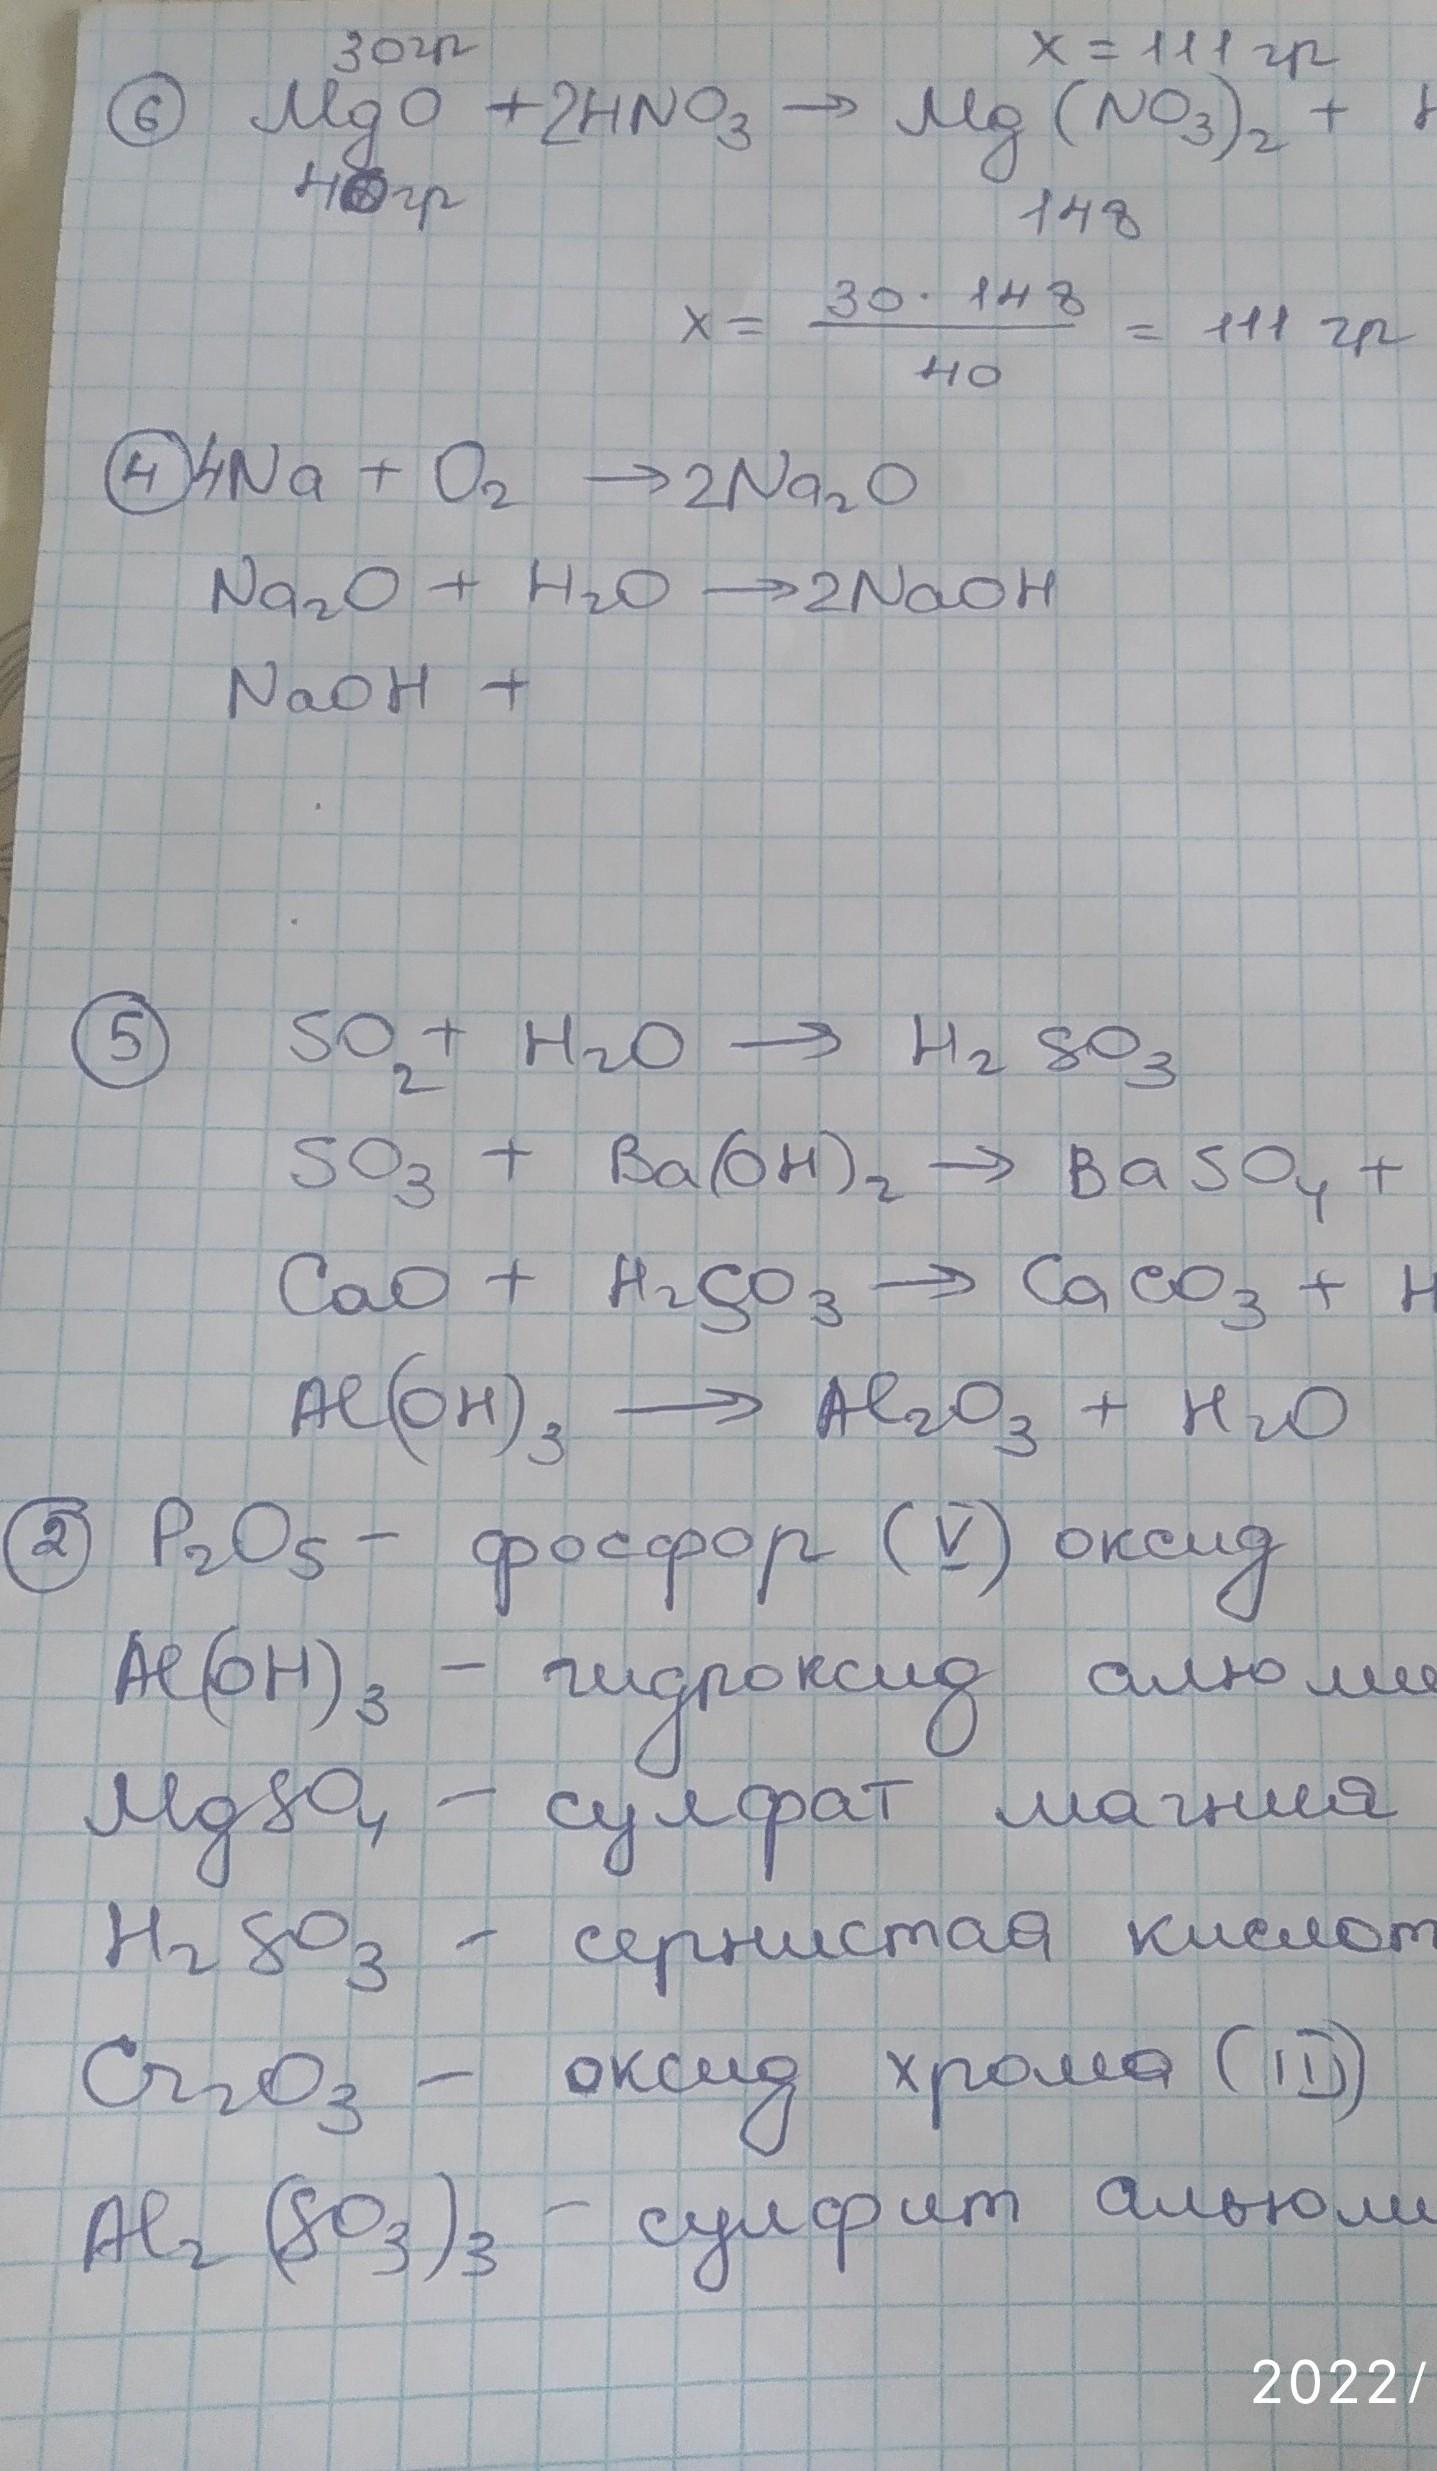 30гр x = 111 гр
⑥ MgO + 2HNO₃ → Mg(NO₃)₂ + H
40гр 148
x = 30 · 148 / 40 = 111 гр
④ 4Na + O₂ → 2Na₂O
Na₂O + H₂O → 2NaOH
NaOH +
⑤ SO₂ + H₂O → H₂SO₃
SO₃ + Ba(OH)₂ → BaSO₄ +
CaO + H₂SO₃ → CaCO₃ + H
Al(OH)₃ → Al₂O₃ + H₂O
② P₂O₅ - фосфор (V) оксид
Al(OH)₃ - гидроксид алюми
MgSO₄ - сулфат магния
H₂SO₃ - сернистая кислот
Cr₂O₃ - оксид хрома (III)
Al₂(SO₃)₃ - сулфит альюми
2022/